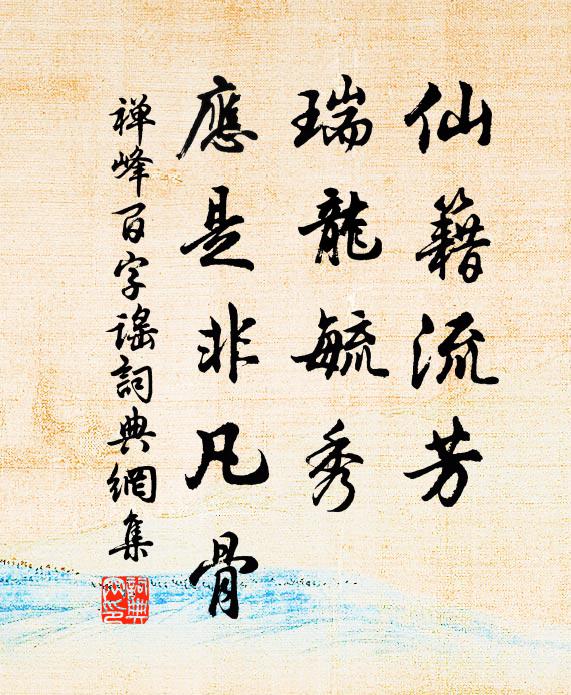 仙籍流芳
瑞龍毓秀
應是非凡骨
禅峰百字謠詞典網集